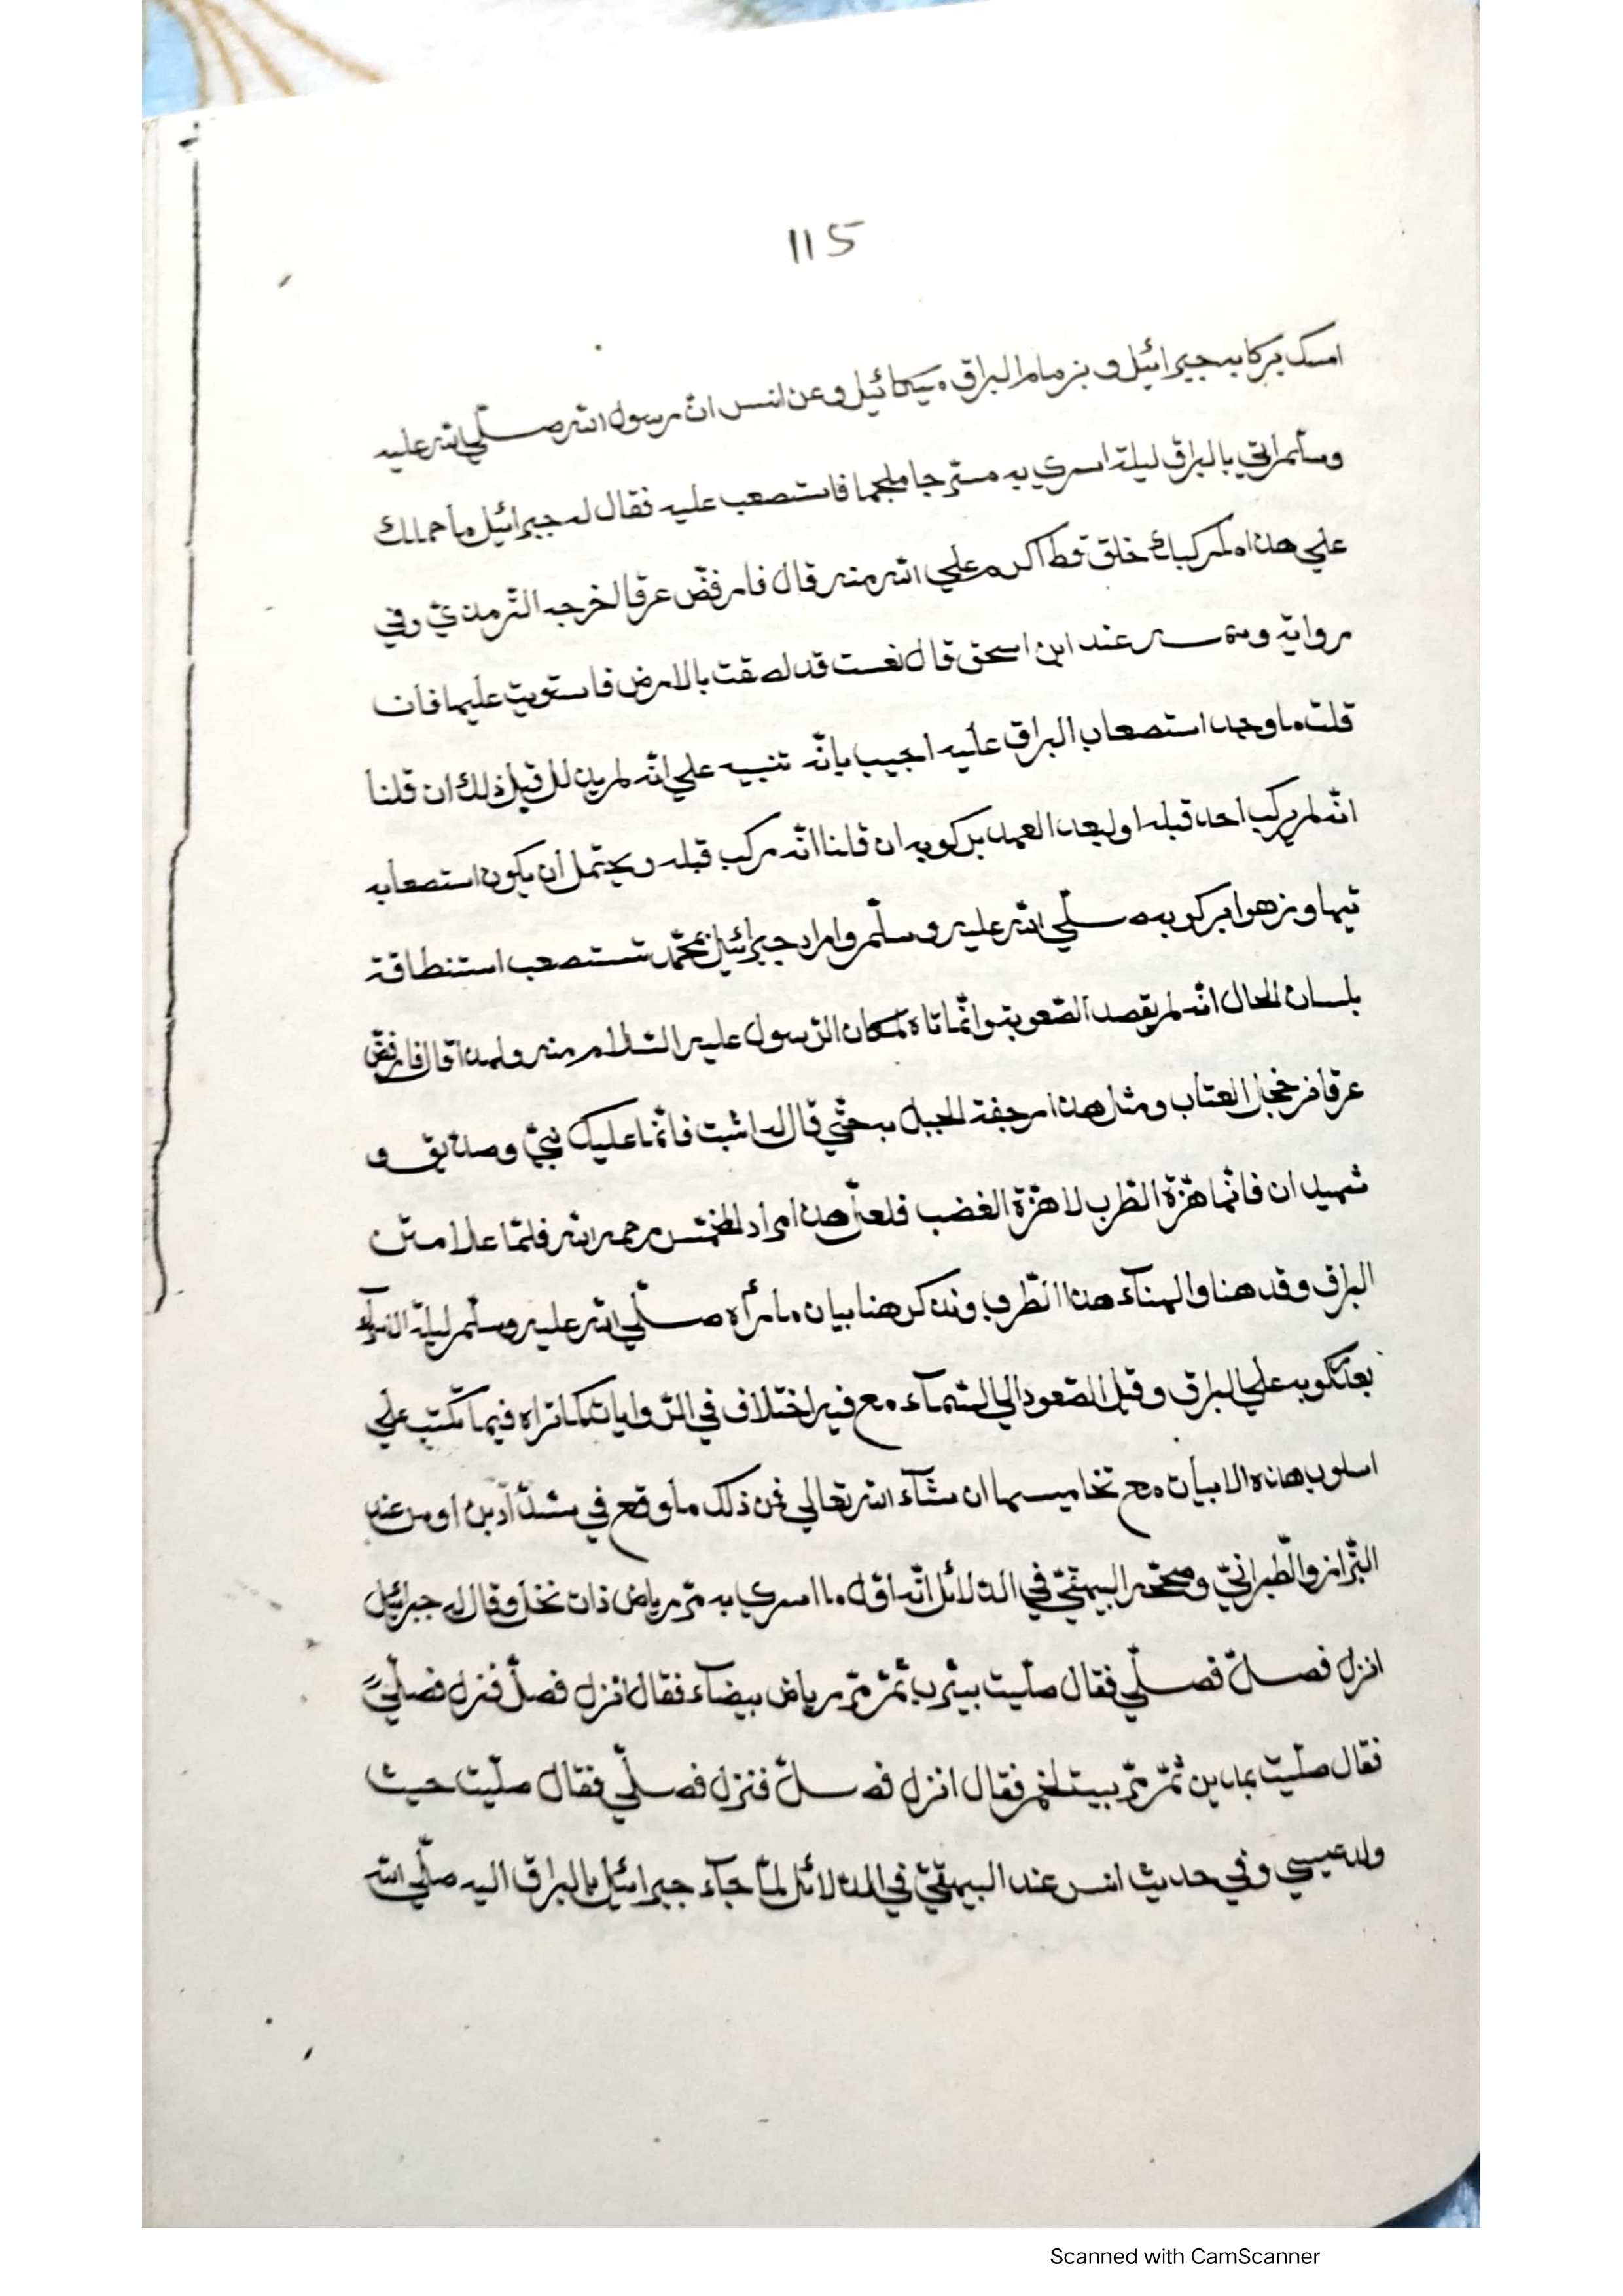 115
امسك بركابه جبرائيل وبزمام البراق ميكائيل وعن انس انّ رسول الله صلّي الله عليه
وسلّم اتي بالبراق ليلة اسري به مسرّجا ملجما فاستصعب عليه فقال له جبرائيل ما حملك
علي هذا ما ركبك خلق قط اكرم علي الله منه قال فارفضّ عرقا اخرجه التّرمذيّ وفي
رواية عند ابن اسحق قال نعست قد لصقت بالارض فاستويت عليها فان
قلت ما وجه استصعاب البراق عليه اجيب بانّه تنبيه علي انّه لم يذلل قبل ذلك ان قلنا
انّه لم يركب احد قبله او لبعد العهد بركوبه ان قلنا انّه ركب قبله ويحتمل ان يكون استصعابه
تيها وزهوا بركوبه صلّي الله عليه وسلّم واراد جبرائيل بمحمّد تستصعب استنطاقة
بلسان الحال انّه لم يقصد الصّعوبة وانّما تاه لمكان الرّسول عليه السّلام منه ولهذا قال فارفضّ
عرقا من خجل العتاب ومثل هذا رجفة الجبل به حتّي قال له اثبت فانّما عليك نبيّ وصدّيق و
شهيدان فانّها هزّة الطّرب لا هزّة الغضب فلعلّ هذا مراد رحمه الله فلمّا علا متن
البراق وقد هنا والهناء هذا الظّرف ونذكر هنا بيان ما رأه صلّي الله عليه وسلّم ليلة الاسرآء
بعد ركوبه علي البراق وقبل الصّعود الي السّمآء مع فيه اختلاف في الرّوايات كما تراه فيما نكتب علي
اسلوب هذه الابيات مع تخاميسها ان شآء الله تعالي فمن ذلك ما وقع في شدّاد بن اوس عند
البزّاز والطّبرانيّ وصحّحه البيهقيّ في الدّلائل انّه اوّل ما اسري به مرّ برياض ذات نخل وقال له جبرائيل
انزل فصلّ فصلّي فقال صلّيت بيثرب ثمّ مرّ برياض بيضآء فقال انزل فصلّ فنزل فصلّي
فقال صلّيت بمدين ثمّ مرّ ببيت لحم فقال انزل فصلّ فنزل فصلّي فقال صلّيت حيث
ولد عيسي وفي حديث انس عند البيهقيّ في الدّلائل لمّا جآء جبرائيل بالبراق اليه صلّي الله
Scanned with CamScanner